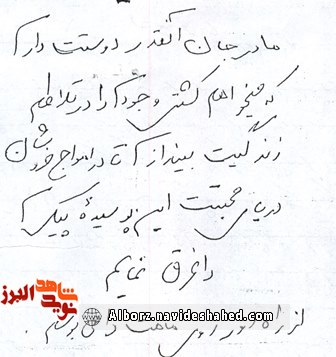 مادر جان آنقدر دوستت دارم
که میخواهم کشتی وجودم را در تلاطم
زندگیت بیندازم تا در امواج خروشان
دریای محبتت این پوسیدۀ پیکر
را غرق نمایم
از راه دور روی ماهت را می بوسم.
نوید شاهد البرز
Alborz.navideshahed.com